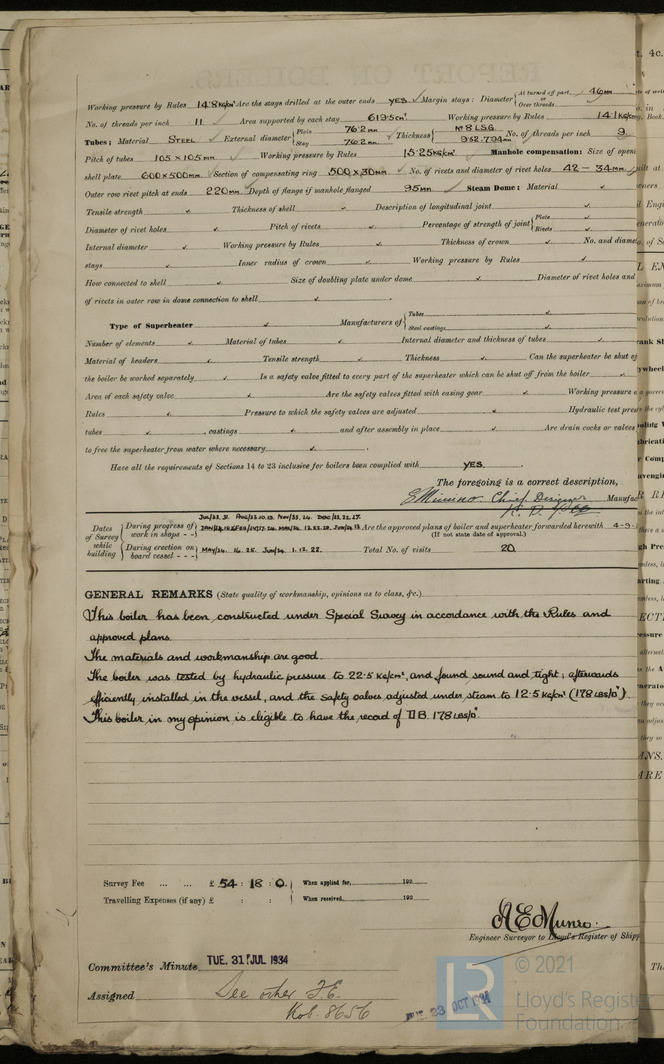 REPORT ON BOILERS
Working pressure by Rules 14.8 Kg/cm² Are the stays drilled at the outer ends YES ✓ Margin stays: Diameter { At turned off part, 46 mm or Over threads
No. of threads per inch 11 ✓ Area supported by each stay 619.5 cm² Working pressure by Rules 14.1 Kg/cm²
Tubes: Material STEEL ✓ External diameter { Plain 76.2 mm Stay 76.2 mm ✓ Thickness { Nº 8 L.S.G. No. of threads per inch 9
Pitch of tubes 105 × 105 mm ✓ Working pressure by Rules 15.25 Kg/cm² ✓ Manhole compensation: Size of open
shell plate 600 × 500 mm ✓ Section of compensating ring 500 × 30 mm ✓ No. of rivets and diameter of rivet holes 42 – 34 mm
Outer row rivet pitch at ends 220 mm ✓ Depth of flange if manhole flanged 95 mm ✓ Steam Dome: Material ✓
Tensile strength ✓ Thickness of shell ✓ Description of longitudinal joint ✓
Diameter of rivet holes ✓ Pitch of rivets ✓ Percentage of strength of joint { Plate ✓ Rivets ✓
Internal diameter ✓ Working pressure by Rules ✓ Thickness of crown ✓ No. and diame
stays ✓ Inner radius of crown ✓ Working pressure by Rules ✓
How connected to shell ✓ Size of doubling plate under dome ✓ Diameter of rivet holes and
of rivets in outer row in dome connection to shell ✓
Type of Superheater ✓ Manufacturers of { Tubes ✓ Steel castings ✓
Number of elements ✓ Material of tubes ✓ Internal diameter and thickness of tubes ✓
Material of headers ✓ Tensile strength ✓ Thickness ✓ Can the superheater be shut of
the boiler be worked separately ✓ Is a safety valve fitted to every part of the superheater which can be shut off from the boiler ✓
Area of each safety valve ✓ Are the safety valves fitted with easing gear ✓ Working pressure
Rules ✓ Pressure to which the safety valves are adjusted ✓ Hydraulic test pres
tubes ✓ , castings ✓ and after assembly in place ✓ Are drain cocks or valves
to free the superheater from water where necessary ✓
Have all the requirements of Sections 14 to 23 inclusive for boilers been complied with YES
The foregoing is a correct description,
Chief Designer Manufac
Dates of Survey while building { During progress of work in shops - -
Are the approved plans of boiler and superheater forwarded herewith 4-9-
(If not state date of approval.)
During erection on board vessel - - - MAY/34. 16. 25. JUN/34. 1. 12. 22. Total No. of visits 20
GENERAL REMARKS (State quality of workmanship, opinions as to class, &c.)
This boiler has been constructed under Special Survey in accordance with the Rules and
approved plans.
The materials and workmanship are good.
The boiler was tested by hydraulic pressure to 22.5 Kg/cm², and found sound and tight; afterwards
efficiently installed in the vessel, and the safety valves adjusted under steam to 12.5 Kg/cm² (178 LBS/□").
This boiler in my opinion is eligible to have the record of DB. 178 LBS/□".
Survey Fee ... ... £ 54 : 18 : 0. } When applied for, 192
Travelling Expenses (if any) £ : : } When received, 192
A E Munro.
Engineer Surveyor to Lloyd's Register of Shipp
Committee's Minute TUE. 31 JUL 1934
Assigned See other F.E.
Kob. 8656
© 2021
Lloyd's Register
Foundation
LR